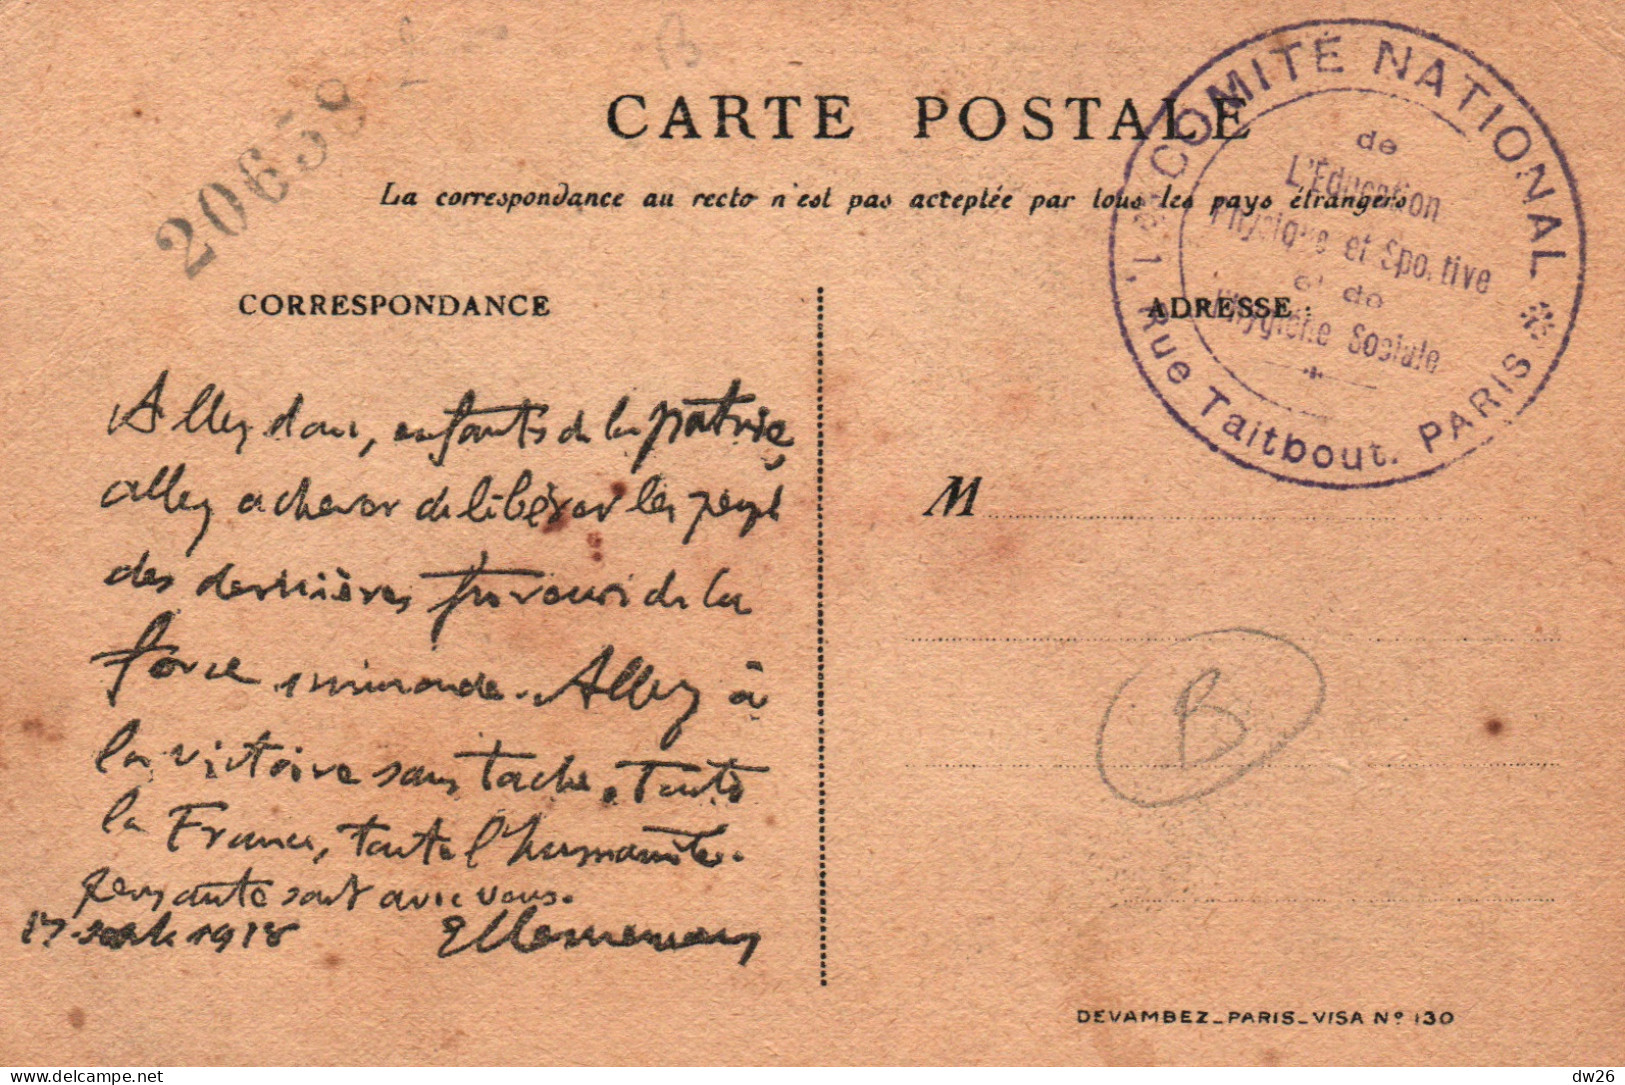 20659
B
CARTE POSTALE
La correspondance au recto n'est pas acceptée par tous les pays étrangers
COMITÉ NATIONAL
de
L'Éducation
Physique et Sportive
et de
l'Hygiène Sociale
Rue Taitbout. PARIS
CORRESPONDANCE
ADRESSE :
Allez donc, enfants de la patrie,
allez achever de libérer les peuples
des dernières fureurs de la
force immonde. Allez à
la victoire sans tache. Toute
la France, toute l'humanité
pensante sont avec vous.
17 1918 Clemenceau
M
B
DEVAMBEZ_PARIS_VISA Nº 130
dw26